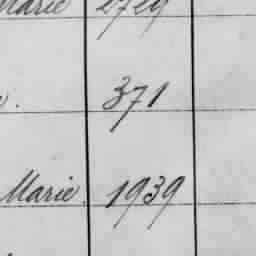 Marie 2729
371
Marie 1939